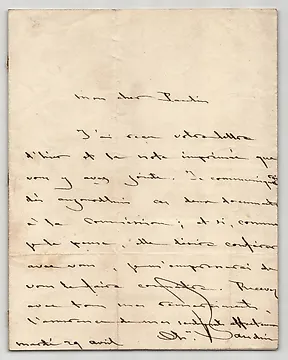 Mon cher Baudin
J'ai reçu votre lettre
d'hier et la note imprimée que
vous y avez jointe. Je communique
dès aujourd'hui ces deux documents
à la Commission ; et si, comme
je le pense, elle désire conférer
avec vous, je m'empresserai de
vous le faire connaître. Recevez
avec tous mes remerciements,
l'assurance de mes
mardi 29 avril Ch.